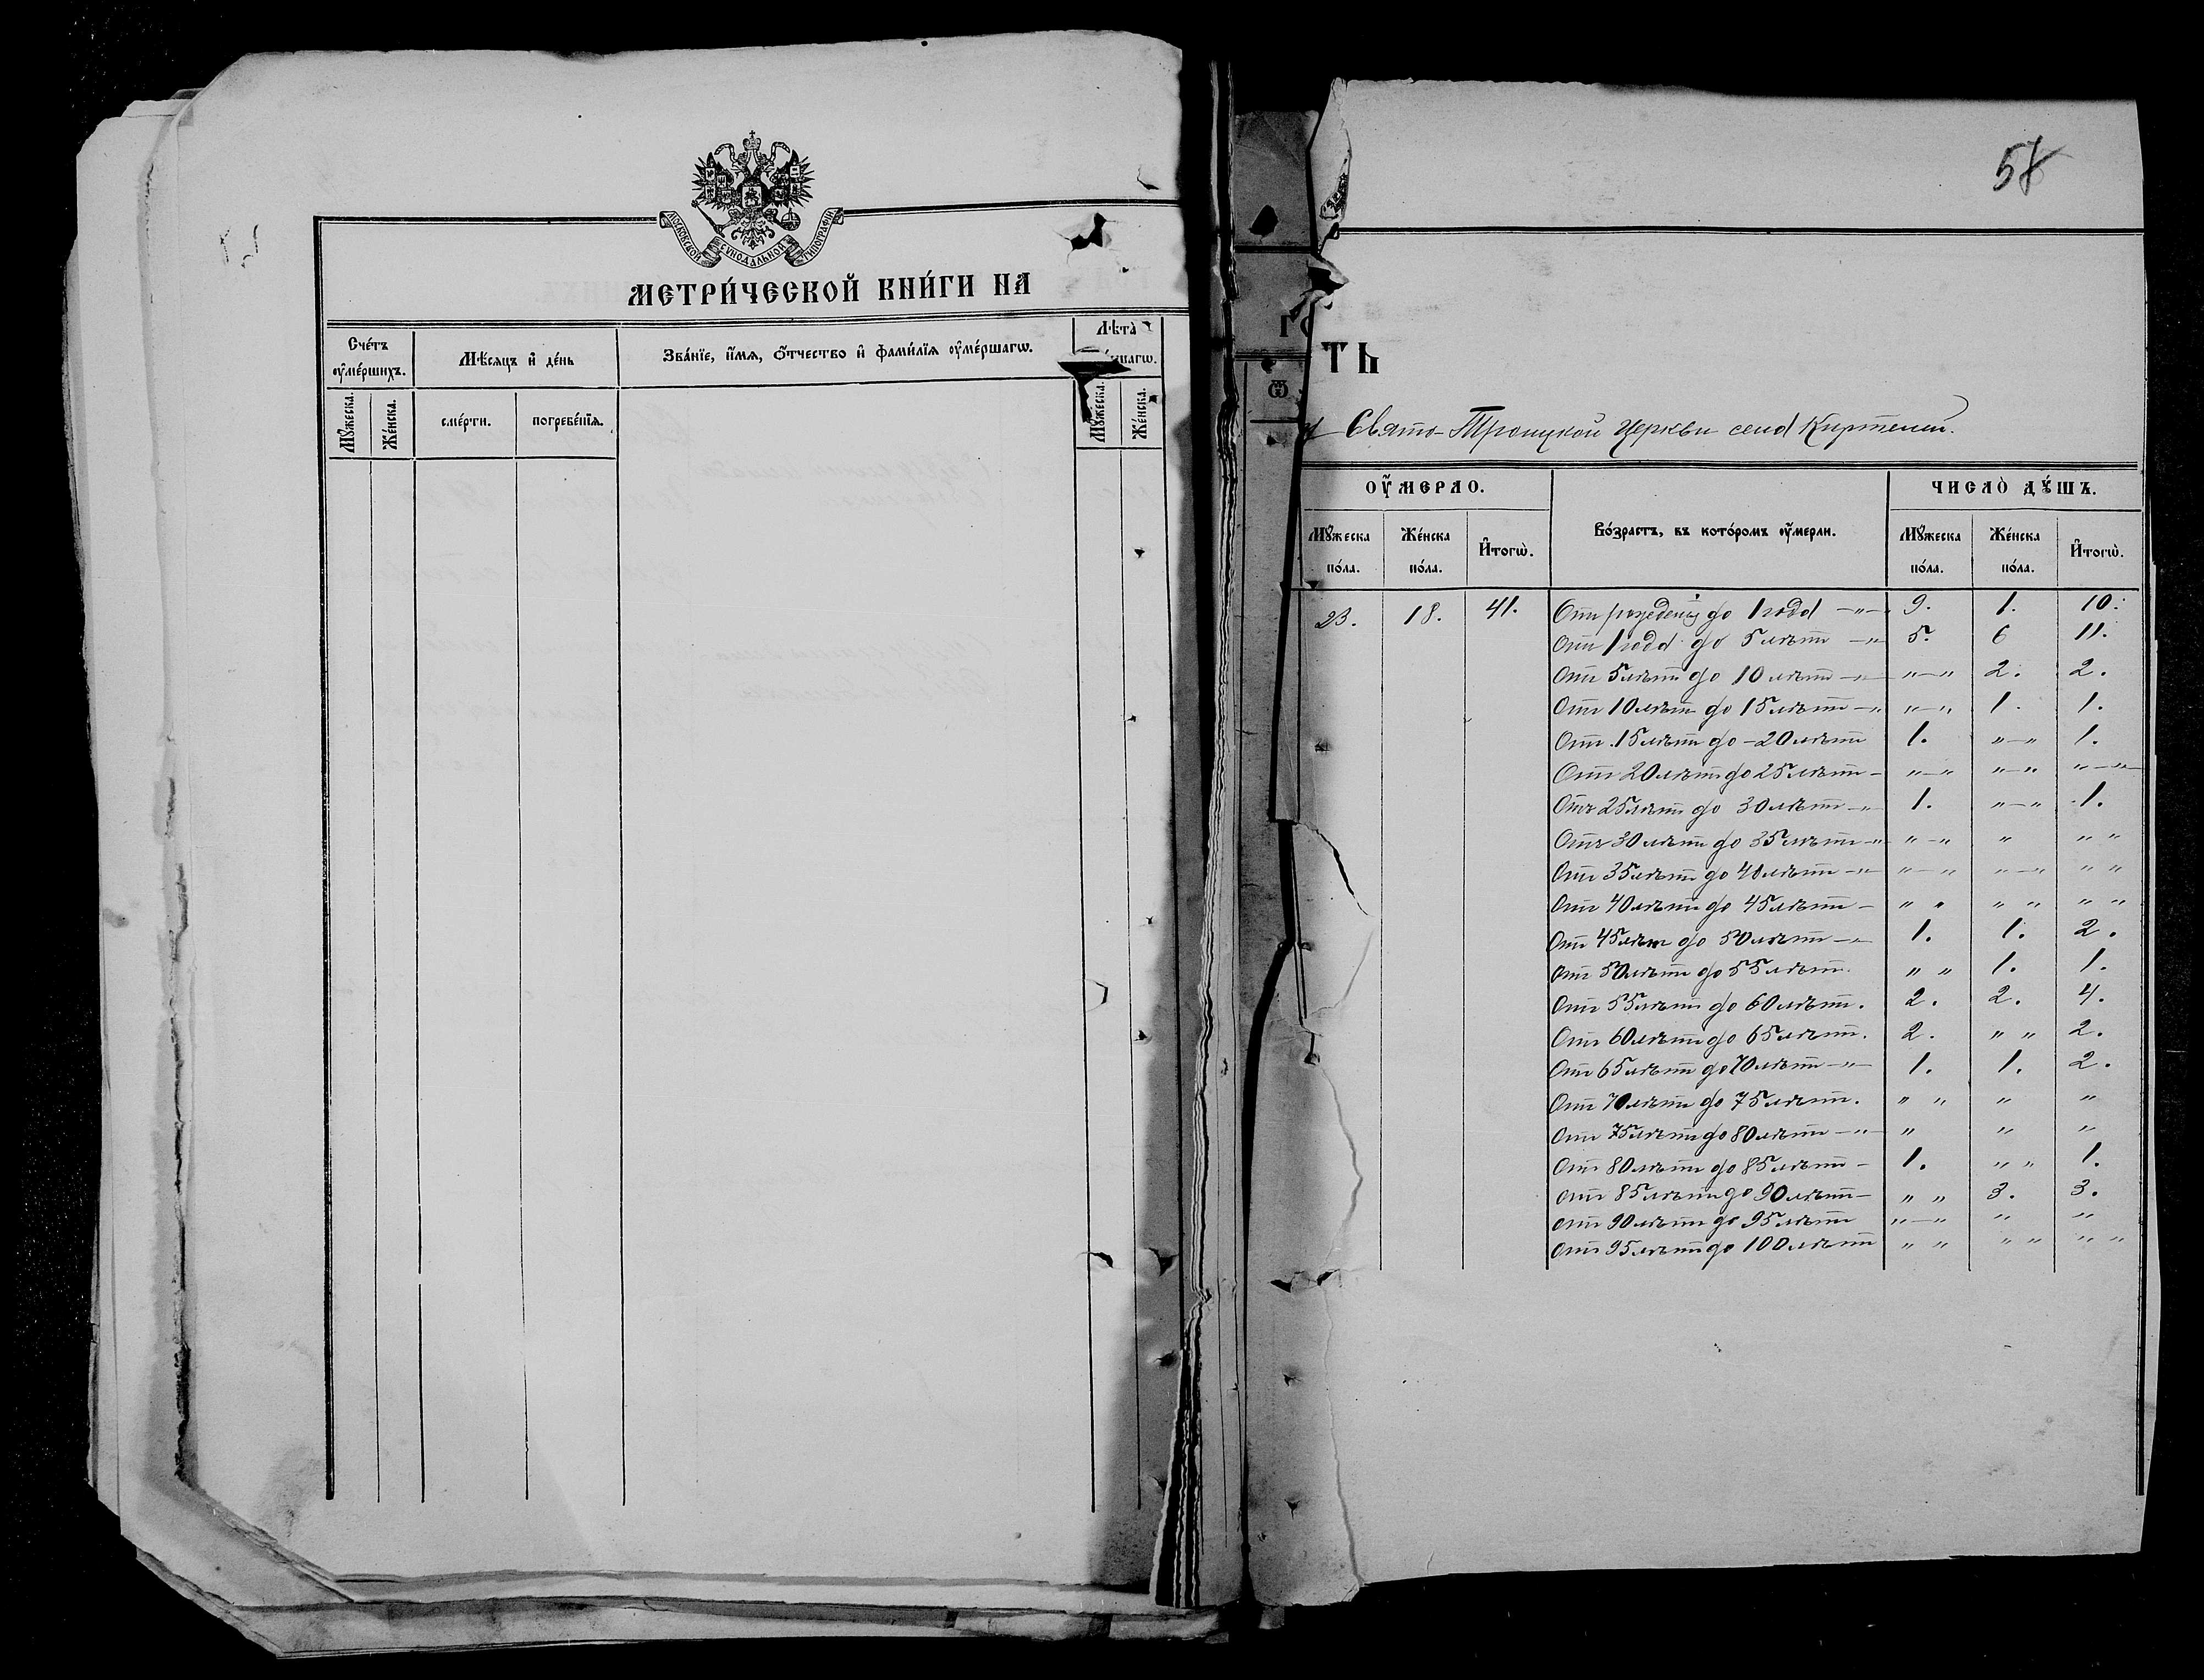 МОСКОВСКОЙ СѴНОДАЛЬНОЙ ТИПОГРАФІИ
МЕТРИ́ЧЕСКОЙ КНИ́ГИ НА
Счéтъ ᲂу҆мéршихъ.
Мѣ́сяцъ и҆ де́нь
Звáнїе, и҆́мѧ, ѻ҆́тчество и҆ фами́лїѧ ᲂу҆мéршагѡ.
Лѣ́та
Мꙋ́жеска.
Жéнска.
смéрти.
погребéнїѧ.
Мꙋ́жеска.
Жéнска.
58
ТЬ
Свято-Троицкой Церкви села
ᲂУ҆МЕРЛО.
Вóзрастъ, въ котóромъ ᲂу҆́мерли.
ЧИСЛО̀ ДꙊ́ШЪ.
Мꙋ́жеска пóла.
Жéнска пóла.
И҆тогѡ̀.
Мꙋ́жеска пóла.
Жéнска пóла.
И҆тогѡ̀.
23. 18. 41. Отъ рожденія до 1 года —„— 9. 1. 10.
Отъ 1 года до 5 лѣтъ —„ 5. 6 11.
Отъ 5 лѣтъ до 10 лѣтъ —„— „—„ 2. 2.
Отъ 10 лѣтъ до 15 лѣтъ —„ „—„ 1. 1.
Отъ 15 лѣтъ до -20 лѣтъ 1. „—„ 1.
Отъ 20 лѣтъ до 25 лѣтъ — „—„ „—„ „—„—
Отъ 25 лѣтъ до 30 лѣтъ —„ 1. „—„ 1.
Отъ 30 лѣтъ до 35 лѣтъ —„ „—„ „ „ „
Отъ 35 лѣтъ до 40 лѣтъ —„— „—„ „—„ „ „
Отъ 40 лѣтъ до 45 лѣтъ — „ „ „ „ „ „
Отъ 45 лѣтъ до 50 лѣтъ —„— 1. 1. 2.
Отъ 50 лѣтъ до 55 лѣтъ. „ „ 1. 1.
Отъ 55 лѣтъ до 60 лѣтъ. 2. 2. 4.
Отъ 60 лѣтъ до 65 лѣтъ. 2. „ „ 2.
Отъ 65 лѣтъ до 70 лѣтъ —„— 1. 1. 2.
Отъ 70 лѣтъ до 75 лѣтъ. „ „ „ „
Отъ 75 лѣтъ до 80 лѣтъ —„— „ „ „
Отъ 80 лѣтъ до 85 лѣтъ — 1. „ „ 1.
Отъ 85 лѣтъ до 90 лѣтъ — „ „ 3. 3.
Отъ 90 лѣтъ до 95 лѣтъ „—„ „ „
Отъ 95 лѣтъ до 100 лѣтъ „ „ „ „ „ „